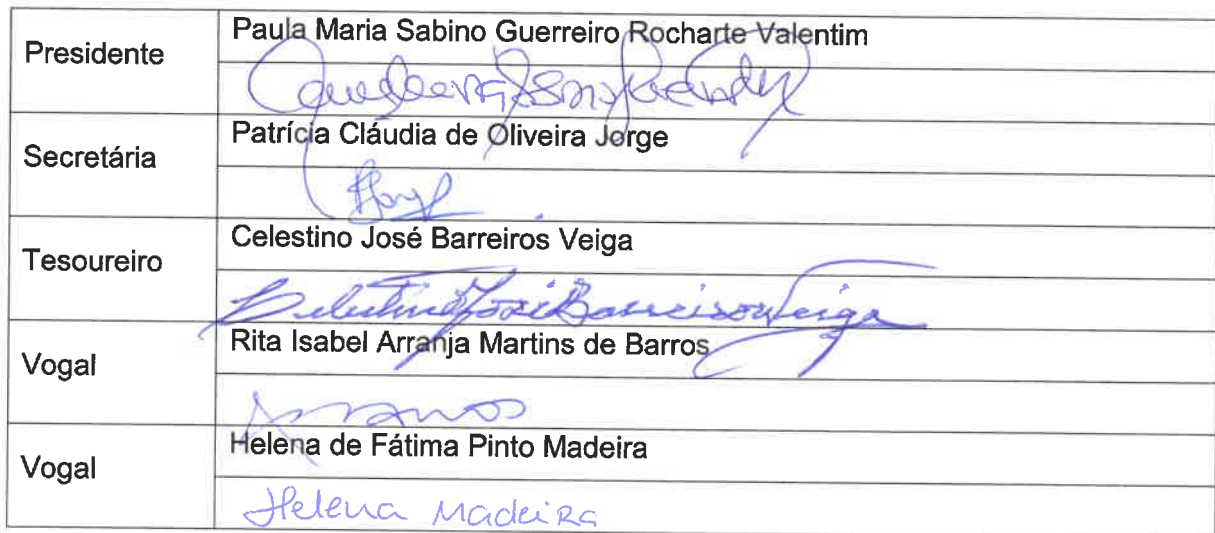 Presidente
Paula Maria Sabino Guerreiro Rocharte Valentim
Secretária
Patrícia Cláudia de Oliveira Jorge
Tesoureiro
Celestino José Barreiros Veiga
Celestino José Barreiros Veiga
Vogal
Rita Isabel Arranja Martins de Barros
Vogal
Helena de Fátima Pinto Madeira
Helena Madeira